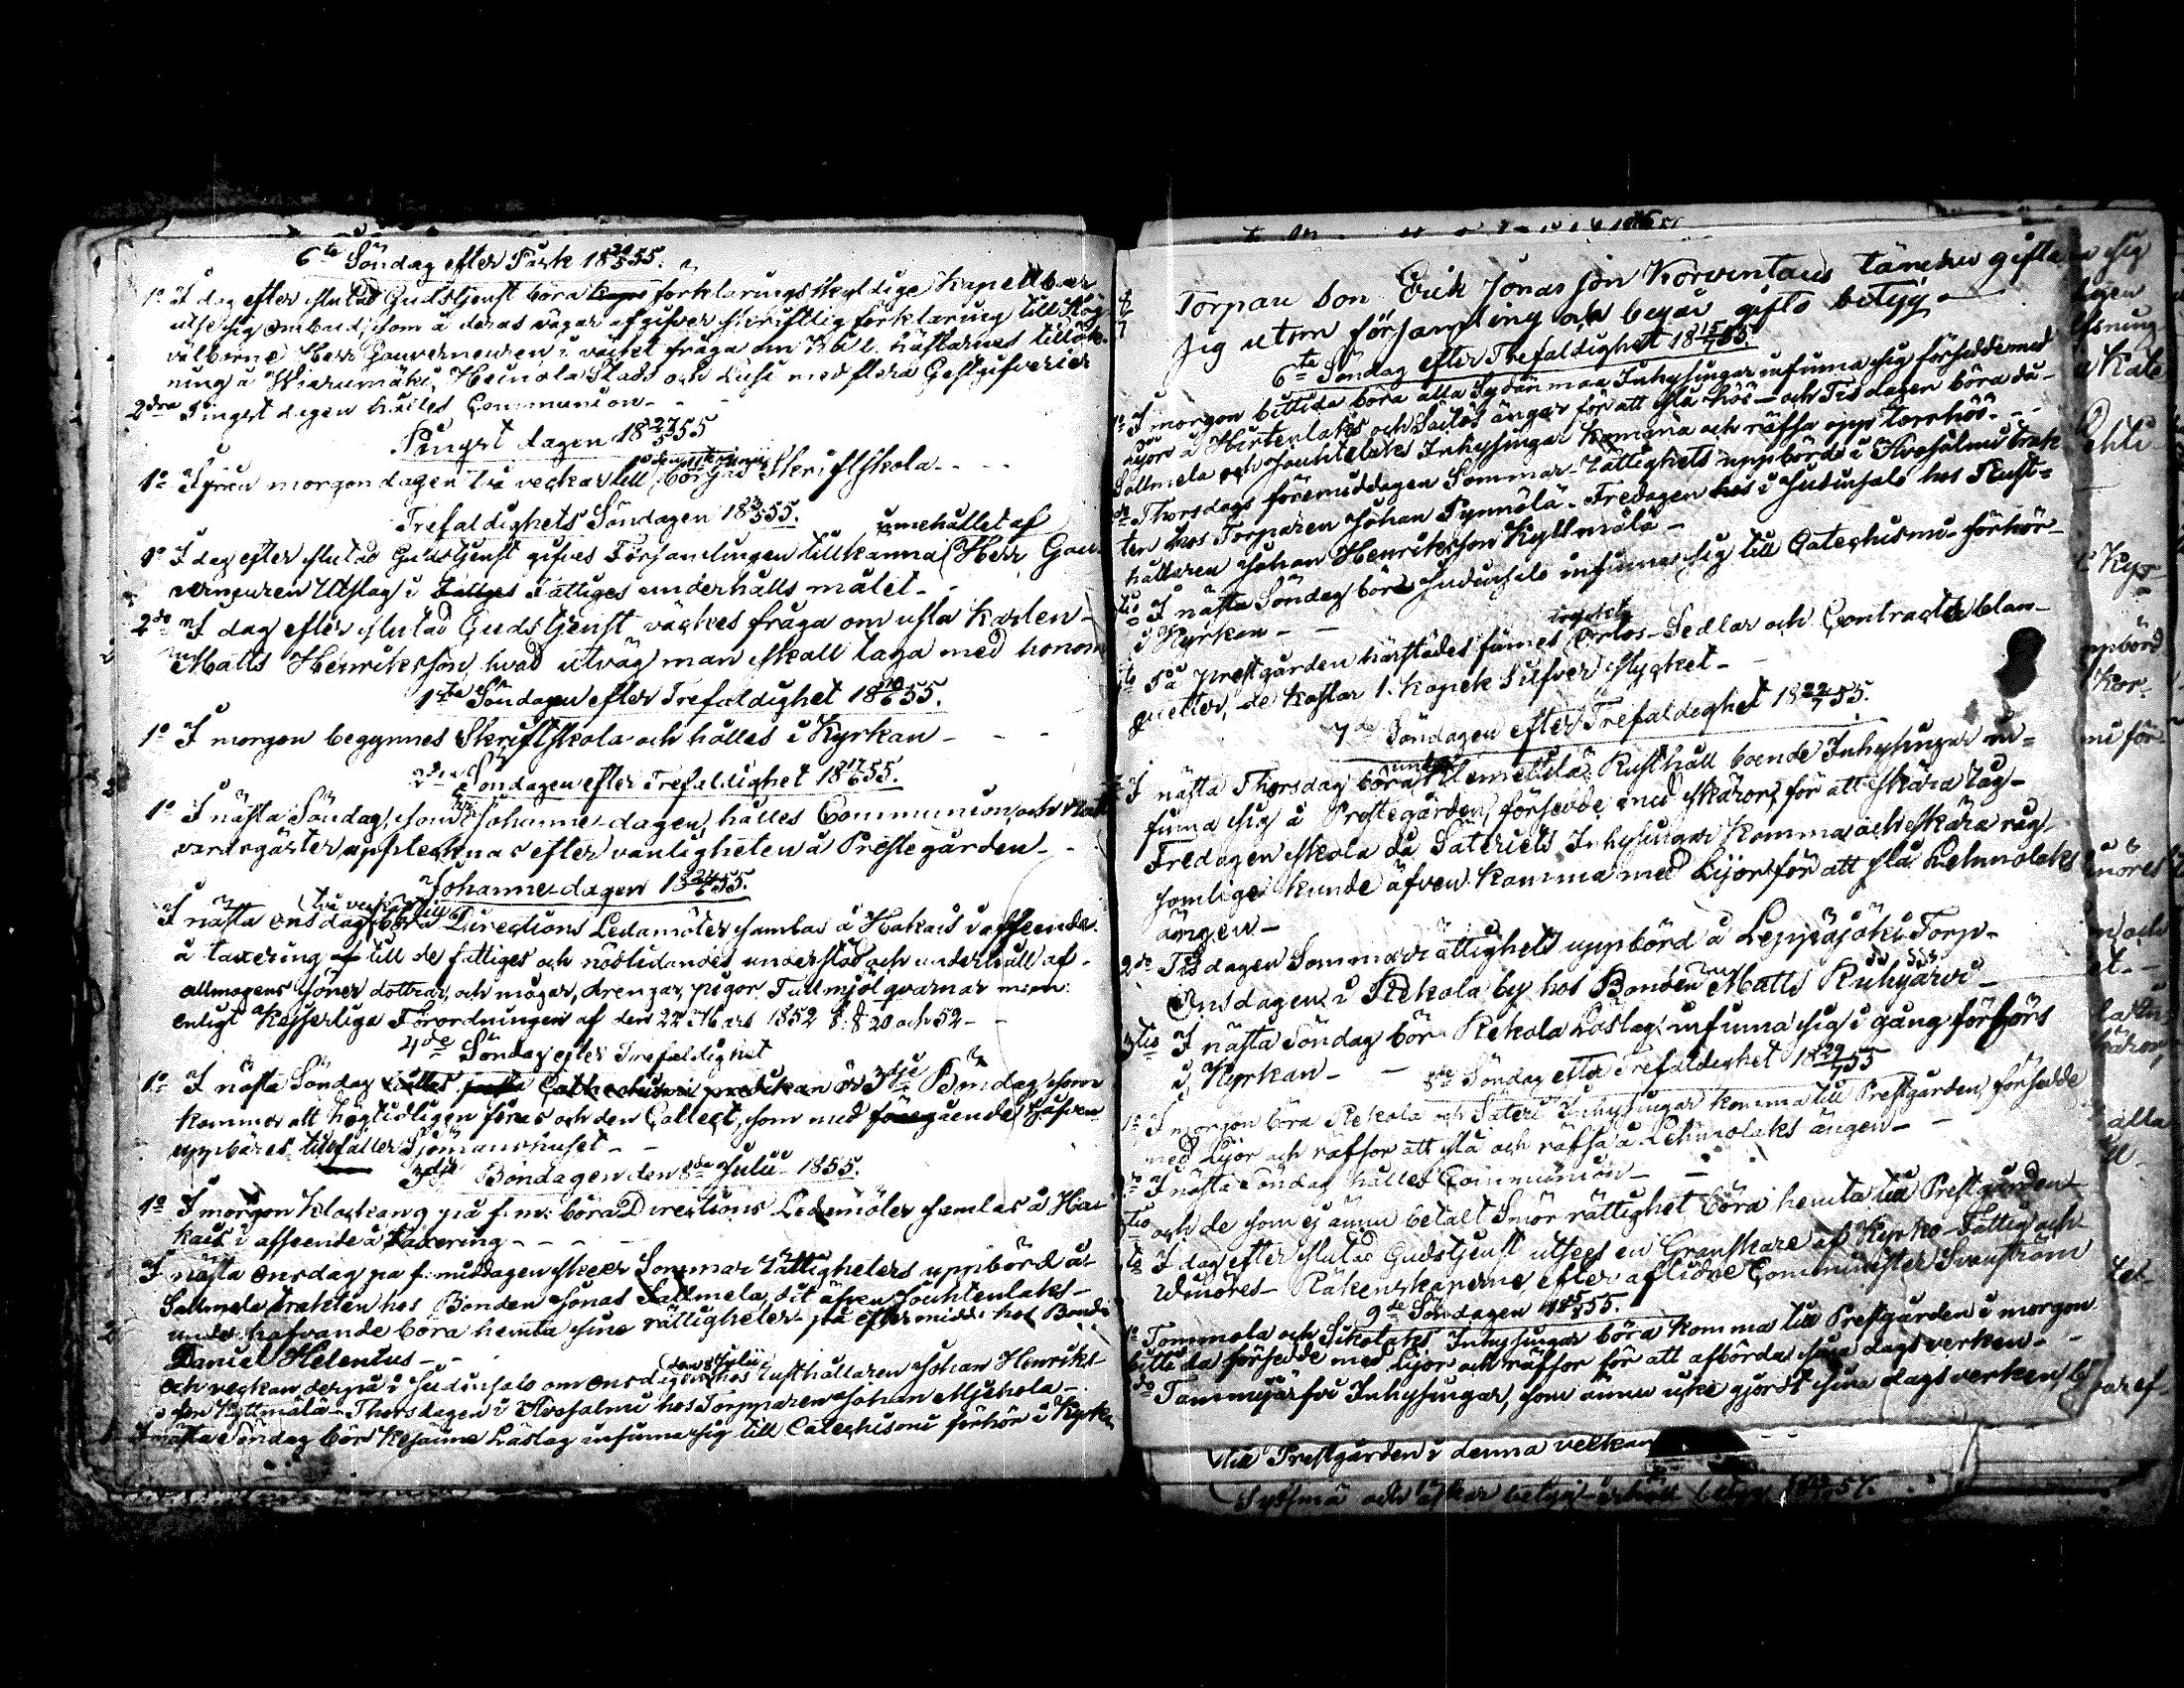 6te Söndag efter Påsk 18 20/5 55.
1o I dag efter slutad Gudstjenst böra förklaringsskyldige Kapellboar
utse sig ombud, som å deras vägar afgifver skriftlig förklaring till Hög
välborne Herr Gouverneuren i väckt fråga om håll hästarnes tillök-
ning å Wierumäki, Heinola Stads och Lusi med flera Gestgifverier
2dra Pingst dagen hålles Communion -
Pingst dagen 18 27/5 55
1o Ifrån morgondagen två veckor till börjas Skriftskola - -
Trefaldighets Söndagen 18 3/6 55.
innehållet af
1o I dag efter slutad Gudstjenst gifves Församlingen tillkänna Herr Gou-
verneuren Utslag i Fattiges underhålls målet -
2do I dag efter slutad Gudstjenst väckes fråga om usla Karlen -
Matts Henriksson, hvad utväg man skall taga med honom
1sta Söndagen efter Trefaldighet 18 10/6 55.
1o I morgon begynnes Skriftskola och hålles i Kyrkan - -
2dra Söndagen efter Trefaldighet 18 17/6 55.
1o I nästa Söndag, som är Johannedagen, hålles Communion och Natt
vardsgäster upptecknas efter vanligheten å Prestegården -
Johannedagen 18 24/6 55.
två veckor till
I nästa onsdag böra Directions Ledamöter samlas å Hakais i afseende
å taxering till de fattiges och nödlidandes understöd och underhåll af
allmogens söner döttrar, och mågar, drengar, pigor Tullmjöl qvarnar m:m:
enligt Kejserliga Förordningen af den 22 Mars 1852 §:§ 20 och 52 -
4de Söndag efter Trefaldighet
1o I nästa Söndag hålles Cathechismi predikan är 3dje Böndag, som
kommer att högtidligen firas och den Collect, som med gående håfven
uppbäres tillfaller Sjömanshuset -
3dje Böndagen den 8de Julii 1855.
1o I morgon klockan 9 på f:m: böra Directions Ledamöter samlas å Ha-
kais i afseende å taxering - - -
I nästa onsdag på f:middagen skeer Sommar Rättigheters uppbörd å
Sallmela trakten hos Bonden Jonas Sallmela, dit äfven Jouhtenlaks -
undo hafvande böra hemta sine rättigheter på eftermidd: hos Bonde
Daniel Helenius -
och veckan derpå i Judinsalo om onsdagen hos Rusthållaren Johan Henriks-
son Kyllmälä - Thorsdagen i Hvosalmi hos Torparen Johan
I nästa Söndag bör Kesäime Läslag infinna sig till Catechismi förhör i Kyrkan

Torpare Son Erik Jonas son Korventaus tänker gifta sig
sig utom församling och begär gifto betyg -
6te Söndag efter Trefaldighet 18 15/7 55.
1o I morgon bittida böra alla Sydänmaa Inhysingar infinna sig försedde med
lijor å Hirtenlaks och Säilös ängar för att slå hö - och Tisdagen böra då
Sallmela och Jouhtelaks Inhysingar komma och räfsa opp torrhöö - -
2do Thorsdags föremiddagen Sommar-Rättighets uppbörd i Hvosalmi trak
ten hos Torparen Johan Pynnölä - Fredagen i Judinsalo hos Rust-
hållaren Johan Henriksson Kyllmälä -
3tio I nästa Söndag böra Judinsalo infinna sig till Catechismi-förhör -
i Kyrkan - -
4to På Prestgården härstädes finnes Orlos-Sedlar och Contracts blan-
quetter, de kostar 1. Kopek Silfver stycket -
7de Söndagen efter Trefaldighet 18 22/7 55.
under
I nästa Thorsdag böra Klemettilä Rusthåll boende Inhysingar in-
finna sig å Prestegården, försedde med skäror, för att skära råg -
Fredagen skola då Säteriets Inhysingar komma och skära råg
somlige kunde äfven komma med Lijor för att slå Lehmolaks
ängen -
2do Tisdagen Sommarrättighets uppbörd å Leppäjöki Torp -
Onsdagen i Rekola by hos Bonden Matts Ruhjärvi -
3tio I nästa Söndag bör Rekola Läslag infinna sig i gång förhörs
i Kyrkan - -
8de Söndag efter Trefaldighet 18 29/7 55
1o I morgon böra Rekola och Säteri Inhysingar komma till Prestgården, försedde
med Lijor och räfsor att slå och räfsa å Lehmolaks ängen - -
2o I nästa Söndag hålles Communion - -
3tio och de som ej ännu betalt Smör rättighet böra hemta till Prestgården
4to I dag efter slutad Gudstjenst utsees en Granskare af Kyrko-Fattig och
Räkenskaperne efter aflidne Comminister Svanström
9de Söndagen 18 5/8 55.
1o Tommola och Sikolaks Inhysingar böra komma till Prestgården i morgon
bittida försedde med Lijor och räfsor för att afbörda sina dagsverken - -
2do Tammijärfvi Inhysingar, som ännu icke gjordt sina dagsverken,
till Prestgården i denna veckan
Sysmä och betyg